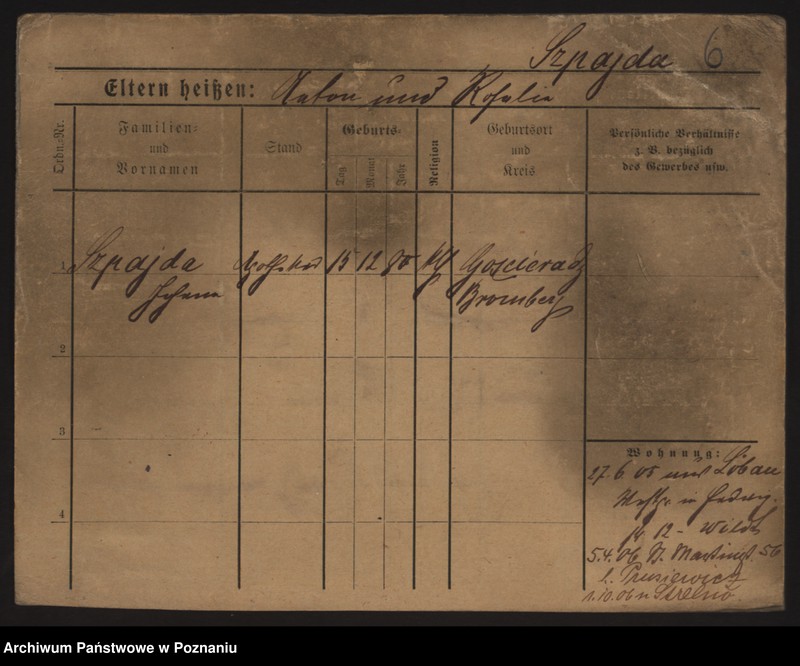 Szpajda 6
Eltern heißen: Anton und Rosalie
Ordn.-Nr.
Familien-
und
Vornamen
Stand
Geburts-
Tag
Monat
Jahr
Religion
Geburtsort
und
Kreis
Persönliche Verhältnisse
z. B. bezüglich
des Gewerbes usw.
1 Szpajda 15 12 80 kth Goscieradz
Johann Bromberg
2
3
4
Wohnung:
27.6 05 aus Löbau
Westpr. n Hedwig-
str 12 - Wilda
5.4.06 St. Martinst. 56
b. Prusiewicz
1.10.06 n Strelno
Archiwum Państwowe w Poznaniu